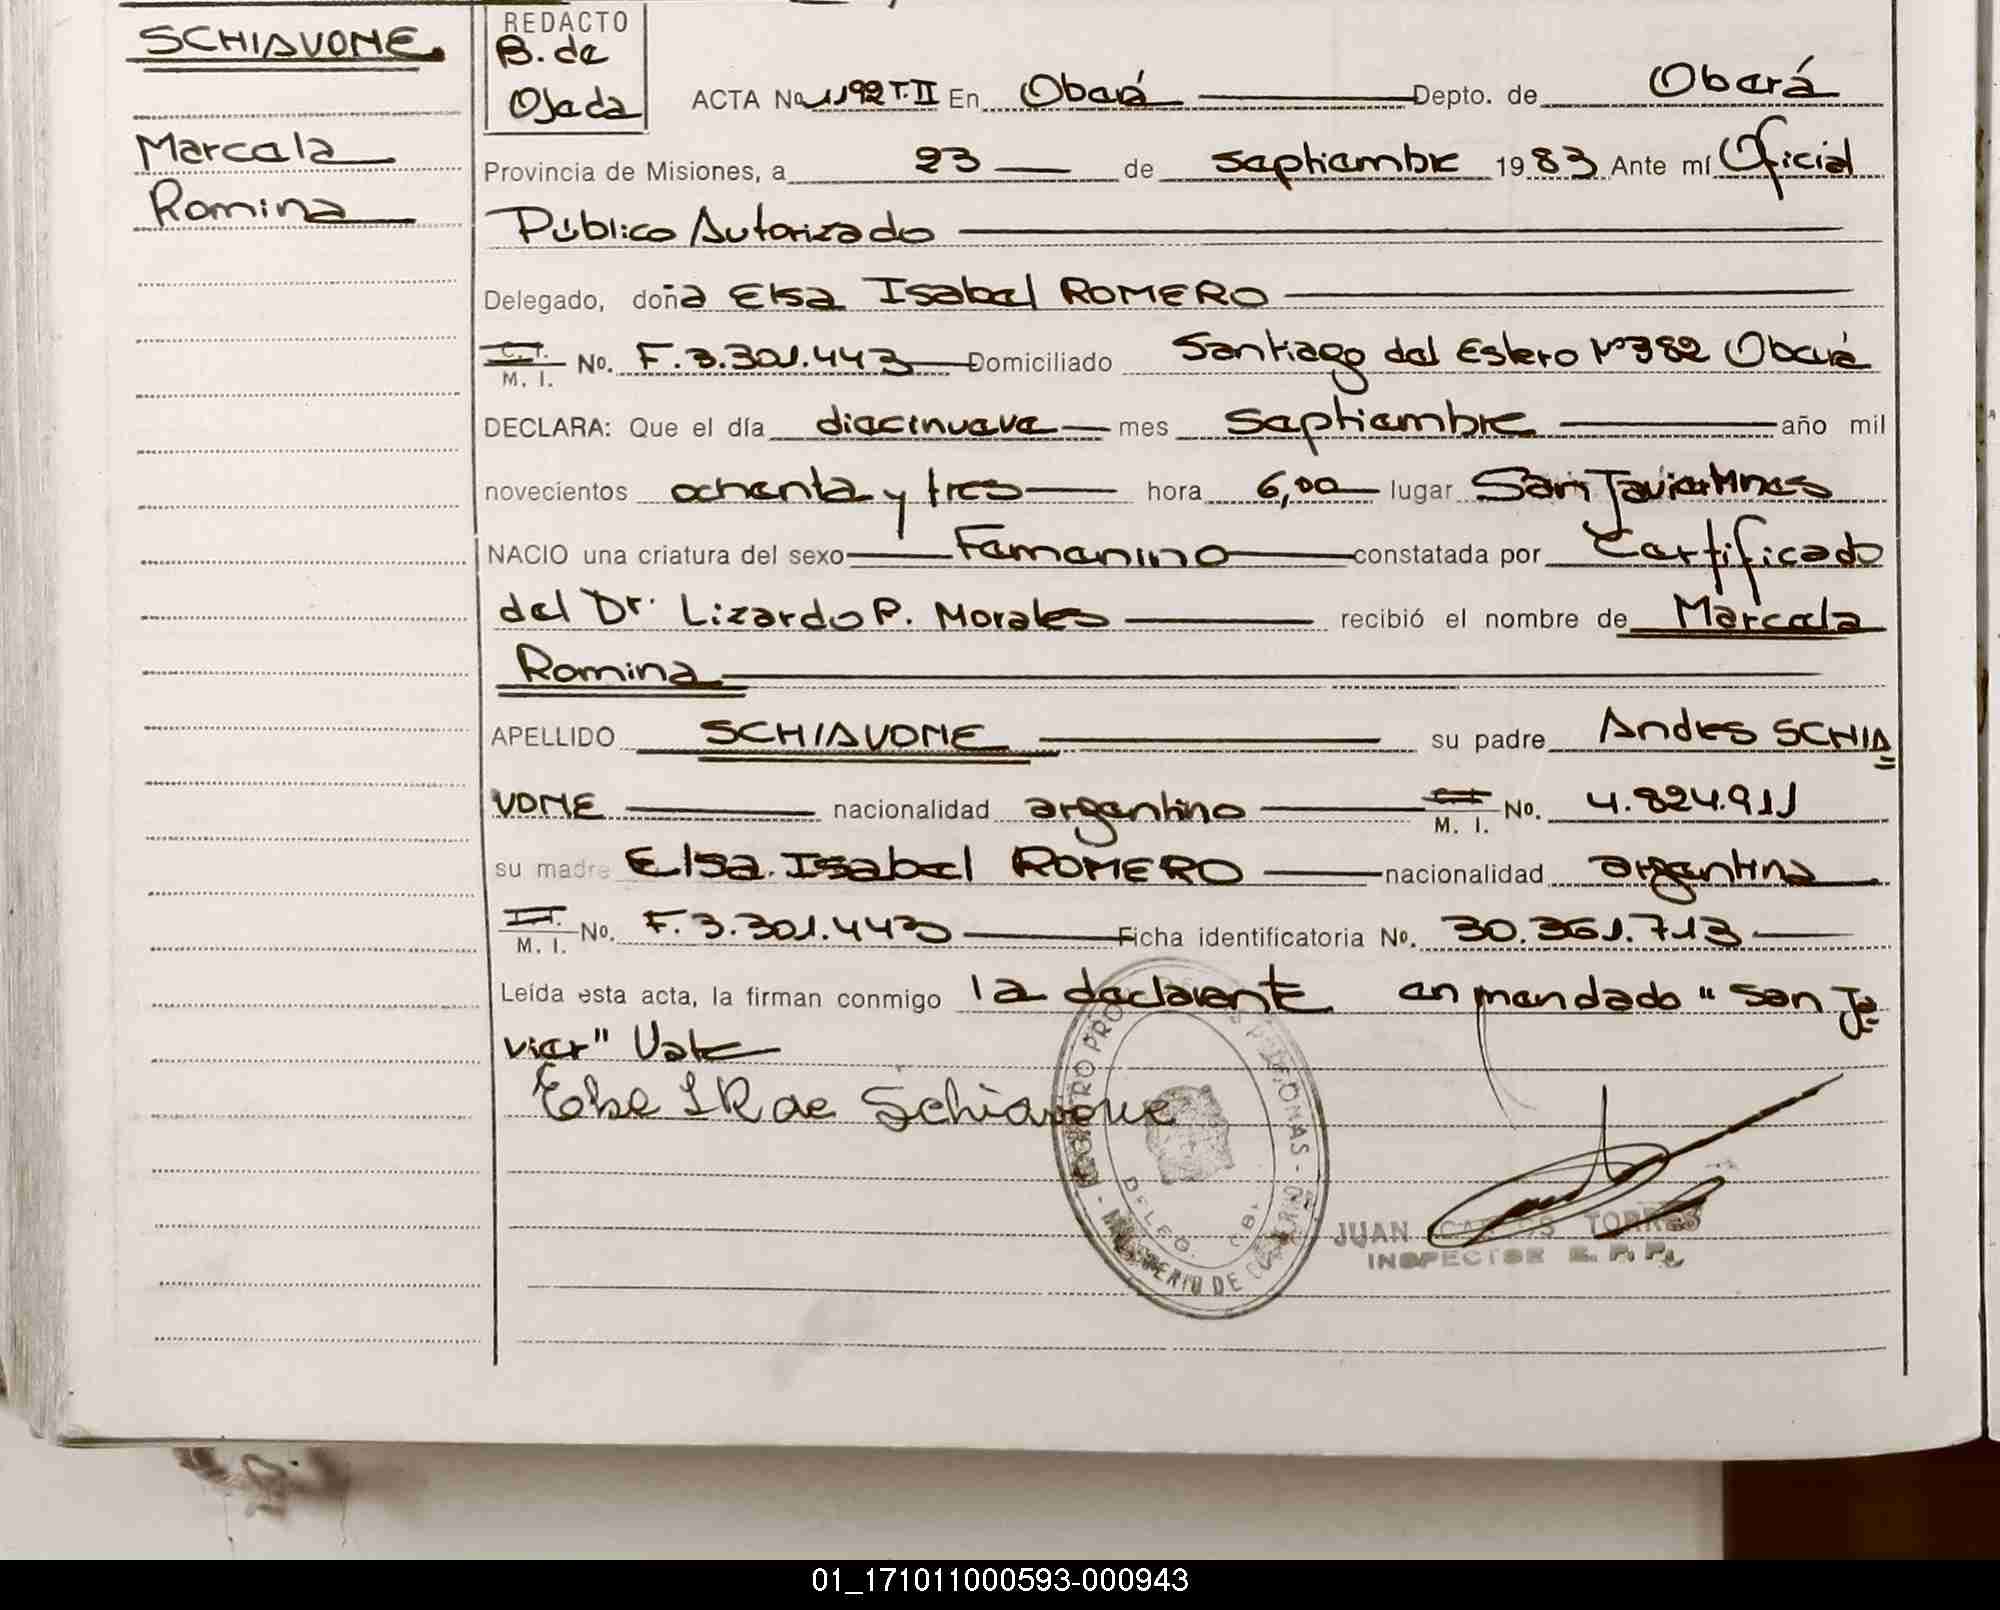 SCHIAVONE
Marcela
Romina
REDACTO
B. de
Ojeda
ACTA No 1192 T.II En Oberá Depto. de Oberá
Provincia de Misiones, a 23 de septiembre 1983 Ante mí Oficial
Público Autorizado
Delegado, doña Elsa Isabel ROMERO
C. I. M. I. No. F.3.301.443 Domiciliado Santiago del Estero Nº382 Oberá
DECLARA: Que el día diecinueve mes septiembre año mil
novecientos ochenta y tres hora 6,00 lugar San Javier Mnes
NACIO una criatura del sexo Femenino constatada por Certificado
del Dr. Lizardo P. Morales recibió el nombre de Marcela
Romina
APELLIDO SCHIAVONE su padre Andres SCHIA
VONE nacionalidad argentino M. I. No. 4.824.911
su madre Elsa Isabel ROMERO nacionalidad argentina
M. I. No. F.3.301.443 Ficha identificatoria No. 30.361.713
Leída esta acta, la firman conmigo la declarante enmendado "San Ja
vier" Vale
Elsa I R de Schiavone
MINISTERIO DE
DELEG.
JUAN CARLOS TORRES
INSPECTOR R. P. P.
01_171011000593-000943